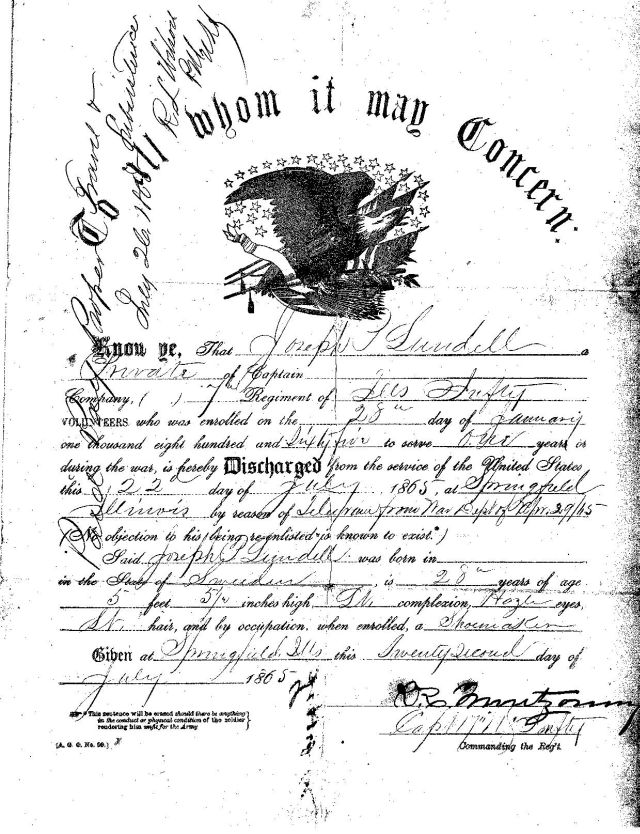 To all whom it may Concern:
Paid Proper Travel &
Subsistence
July 26 1865
R L
Know ye, That Joseph P Lundell a
Private of Captain
Company, ( ) 7th Regiment of Ills Infty
VOLUNTEERS who was enrolled on the 28th day of January
one thousand eight hundred and Sixty five to serve one years or
during the war, is hereby Discharged from the service of the United States
this 22 day of July 1865, at Springfield
Illinois by reason of Telegram from War Dept of Apr. 29/65
(No objection to his being re-enlisted is known to exist.*)
Said Joseph P Lundell was born in
in the State of Sweden, is 28 years of age
5 feet 5¼ inches high, Lt. complexion, Hazle eyes,
Lt. hair, and by occupation, when enrolled, a Shoemaker
Given at Springfield Ills this Twenty second day of
July 1865
*This sentence will be erased should there be anything
in the conduct or physical condition of the soldier
rendering him unfit for the Army
[A. G. O. No. 99.]
Capt Infty
Commanding the Reg't.